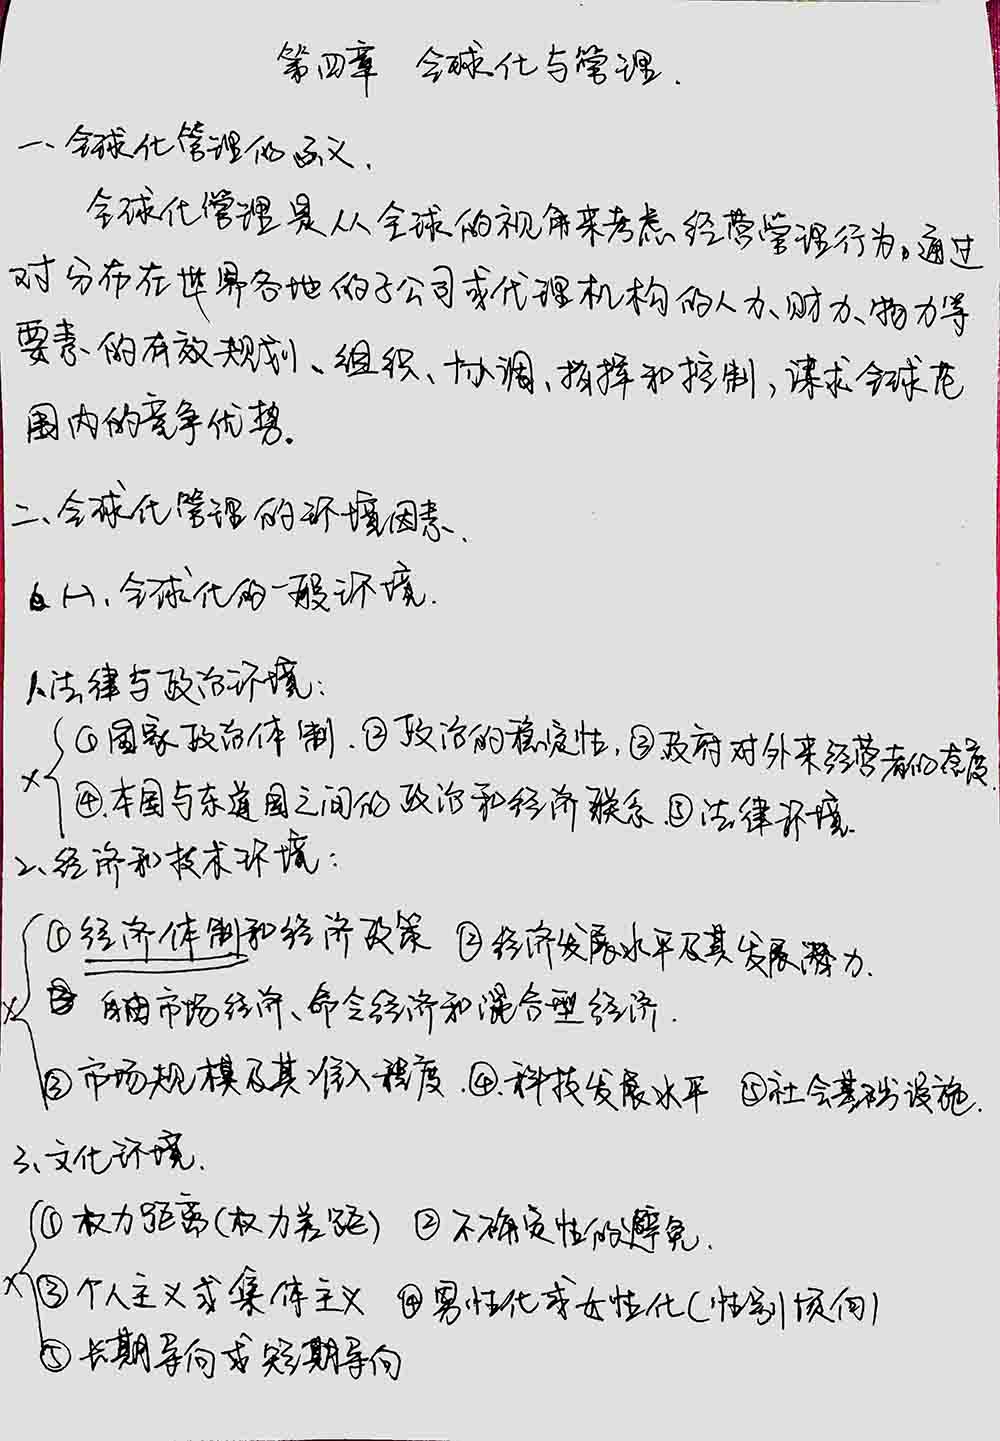 第四章 全球化与管理.
一、全球化管理的函义.
全球化管理是从全球的视角来考虑经营管理行为。通过
对分布在世界各地的子公司或代理机构的人力、财力、物力等
要素的有效规划、组织、协调、指挥和控制,谋求全球范
围内的竞争优势。
二、全球化管理的环境因素.
(一)、全球化的一般环境.
1.法律与政治环境:
①国家政治体制.②政治的稳定性,③政府对外来经营者的态度.
④.本国与东道国之间的政治和经济联系.⑤法律环境.
2、经济和技术环境:
①经济体制和经济政策 ②经济发展水平及其发展潜力.
自由市场经济、命令经济和混合型经济.
③市场规模及其准入程度.④.科技发展水平 ⑤社会基础设施.
3、文化环境.
①权力距离(权力差距) ②不确定性的避免.
③个人主义或集体主义 ④男性化或女性化(性别倾向)
⑤长期导向或短期导向